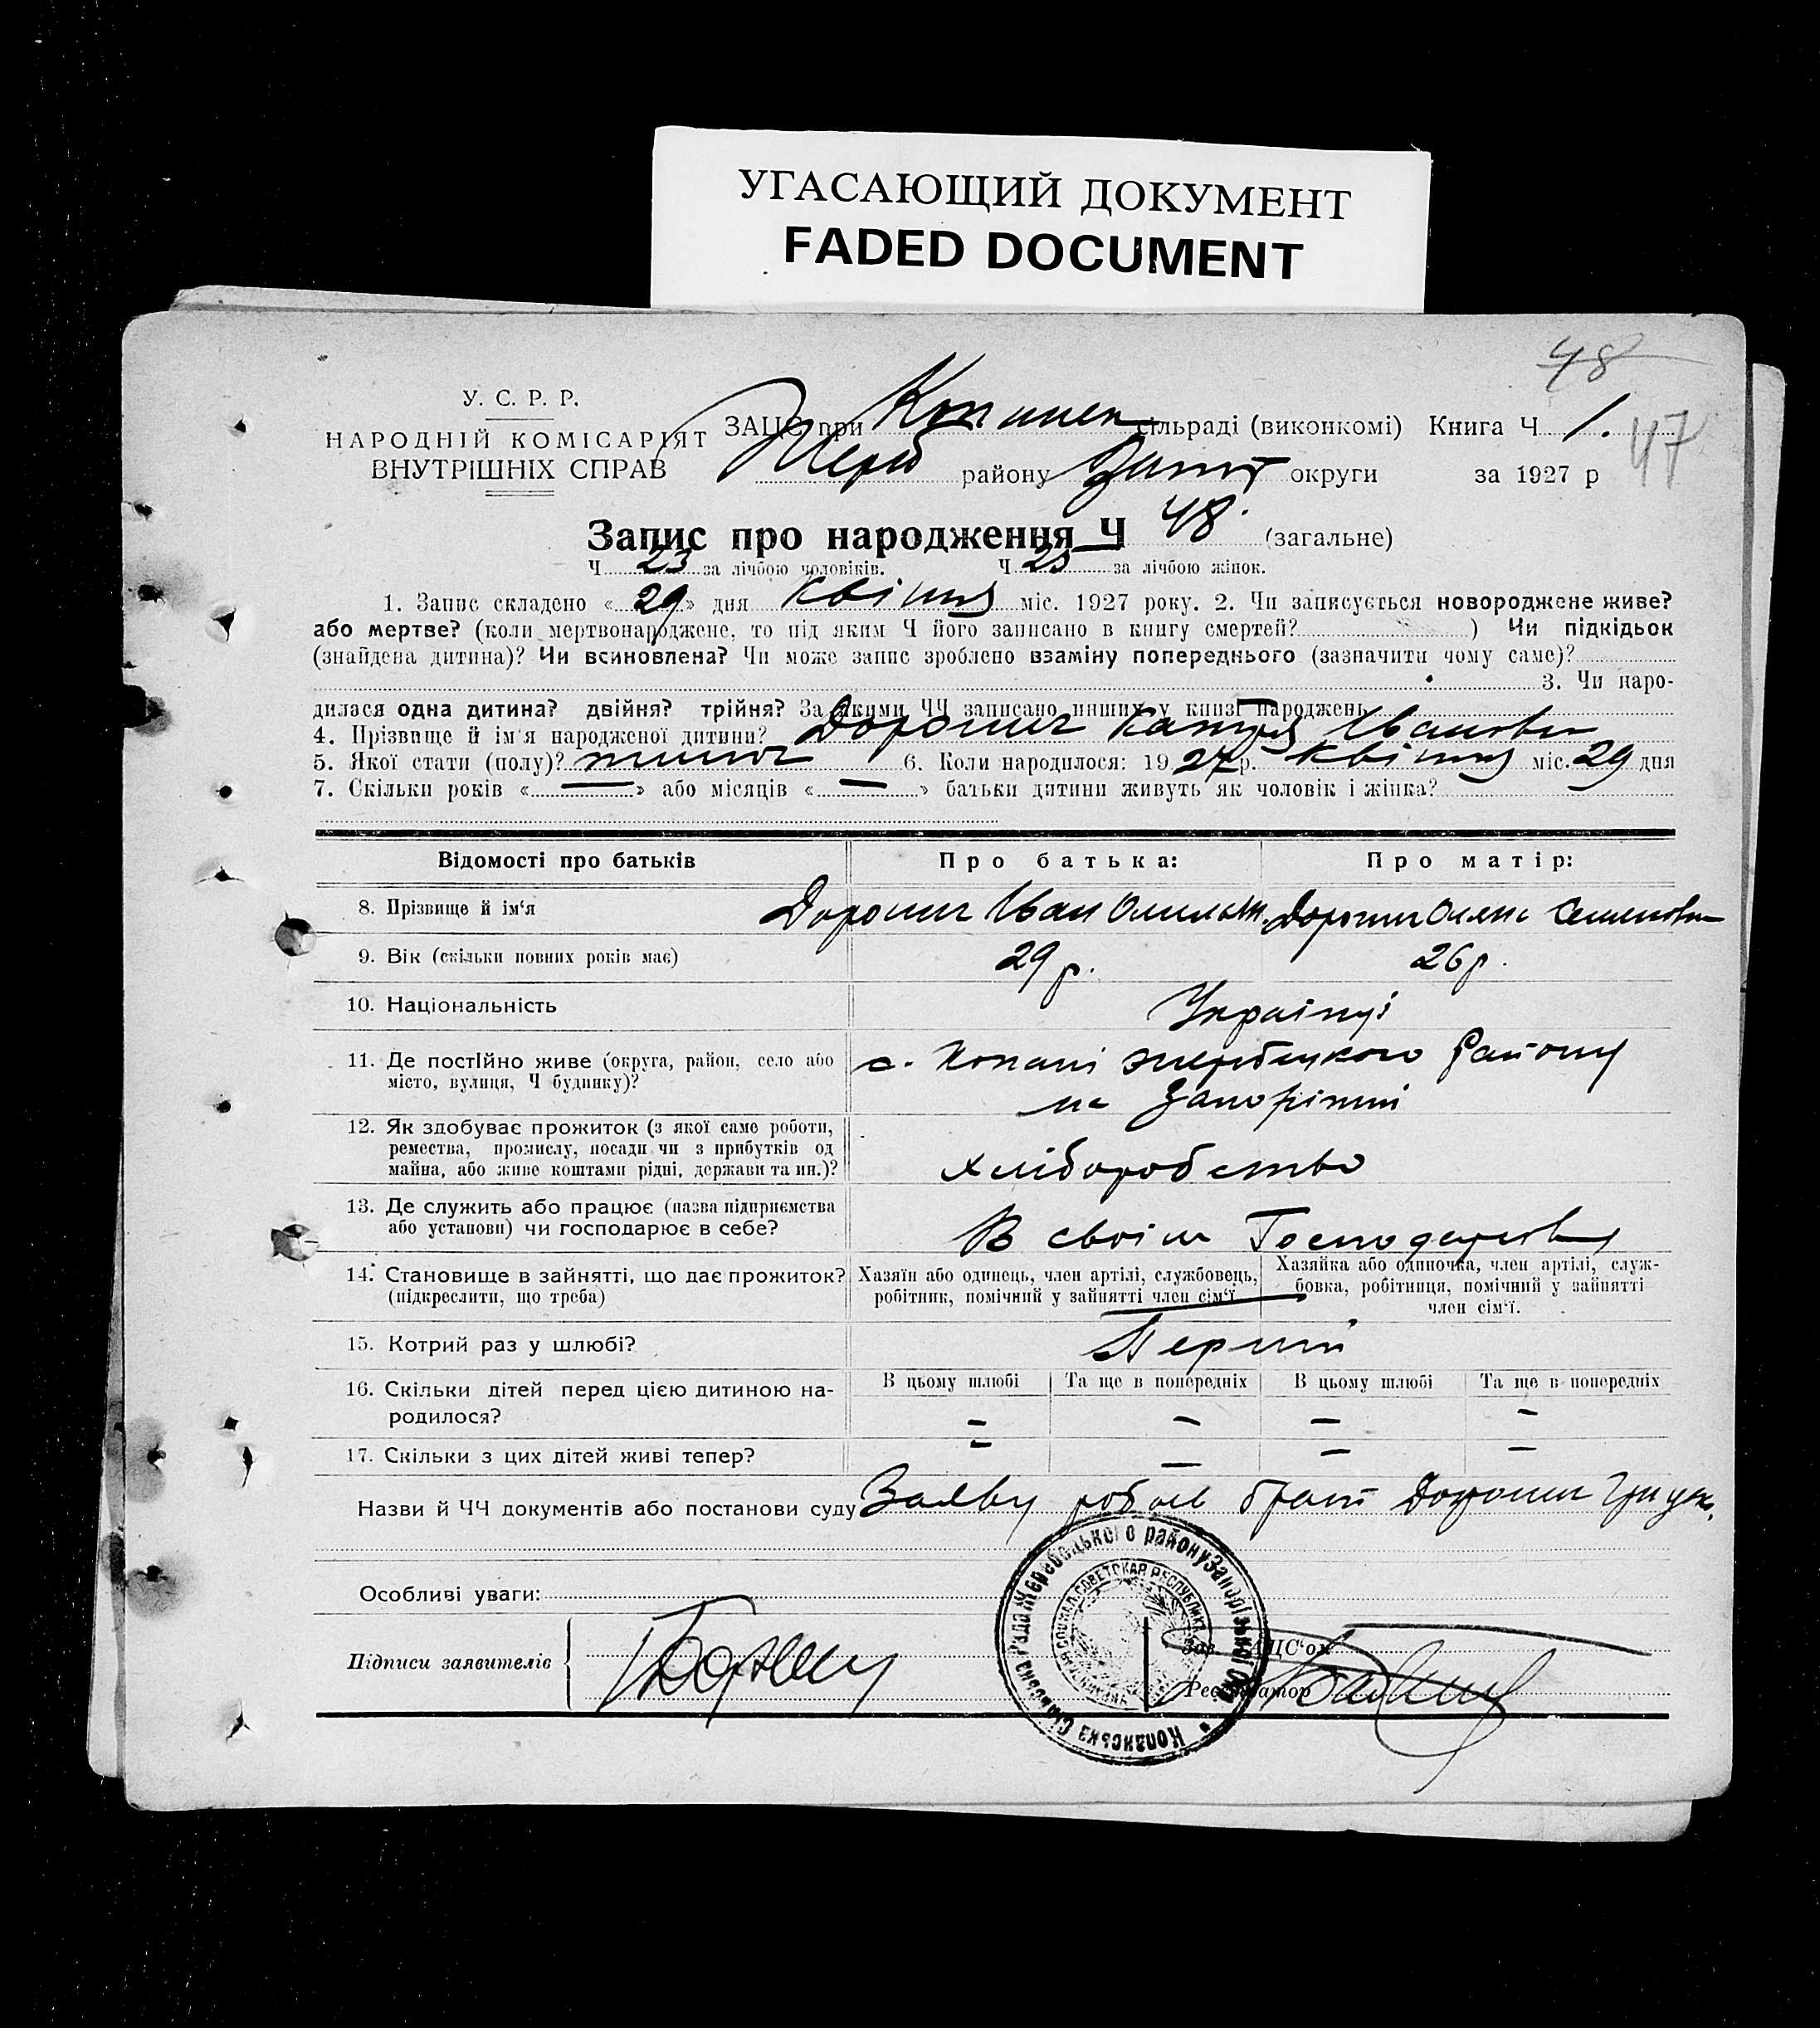 УГАСАЮЩИЙ ДОКУМЕНТ
FADED DOCUMENT
48
47
У. С. Р. Р.
НАРОДНІЙ КОМІСАРІЯТ
ВНУТРІШНІХ СПРАВ
ЗАЦС при сільраді (виконкомі) Книга Ч 1.
Жереб району Запор округи за 1927 р
Запис про народження Ч 48 (загальне)
Ч 23 за лічбою чоловіків. Ч 25 за лічбою жінок.
1. Запис складено « 29 » дня квітня міс. 1927 року. 2. Чи записується новороджене живе?
або мертве? (коли мертвонароджене, то під яким Ч його записано в книгу смертей? ) Чи підкідьок
(знайдена дитина)? Чи всиновлена? Чи може запис зроблено взаміну попереднього (зазначити чому саме)?
3. Чи наро-
дилася одна дитина? двійня? трійня? За якими ЧЧ записано инших у книзі народжень
4. Прізвище й ім'я народженої дитини? Дорошит Катря Іванівн
5. Якої стати (полу)? жіночої 6. Коли народилося: 19 27 р. квітня міс. 29 дня
7. Скільки років « — » або місяців « — » батьки дитини живуть як чоловік і жінка?
Відомості про батьків Про батька: Про матір:
8. Прізвище й ім'я Іван Олена Семенівн
9. Вік (скільки повних років має) 29 р. 26 р.
10. Національність Українці
11. Де постійно живе (округа, район, село або
місто, вулиця, Ч будинку)? с. Копані жеребецкого Району
на Запоріжжі
12. Як здобуває прожиток (з якої саме роботи,
ремества, промислу, посади чи з прибутків од
майна, або живе коштами рідні, держави та ин.)? хліборобство
13. Де служить або працює (назва підприємства
або установи) чи господарює в себе? В своїм Господарстві
14. Становище в зайнятті, що дає прожиток?
(підкреслити, що треба)
Хазяїн або одинець, член артілі, службовець,
робітник, помічний у зайнятті член сім'ї.
Хазяйка або одиночка, член артілі, служ-
бовка, робітниця, помічний у зайнятті
член сім'ї.
15. Котрий раз у шлюбі? Перший
16. Скільки дітей перед цією дитиною на-
родилося?
В цьому шлюбі Та ще в попередніх В цьому шлюбі Та ще в попередніх
– – – –
17. Скільки з цих дітей живі тепер? – – – –
Назви й ЧЧ документів або постанови суду Заяву робив брат
Особливі уваги:
Підписи заявителів
Зав. ЗАЦС'ом
Реєстратор
Копанська Сільська Рада Жеребецького району Запорізької Окр